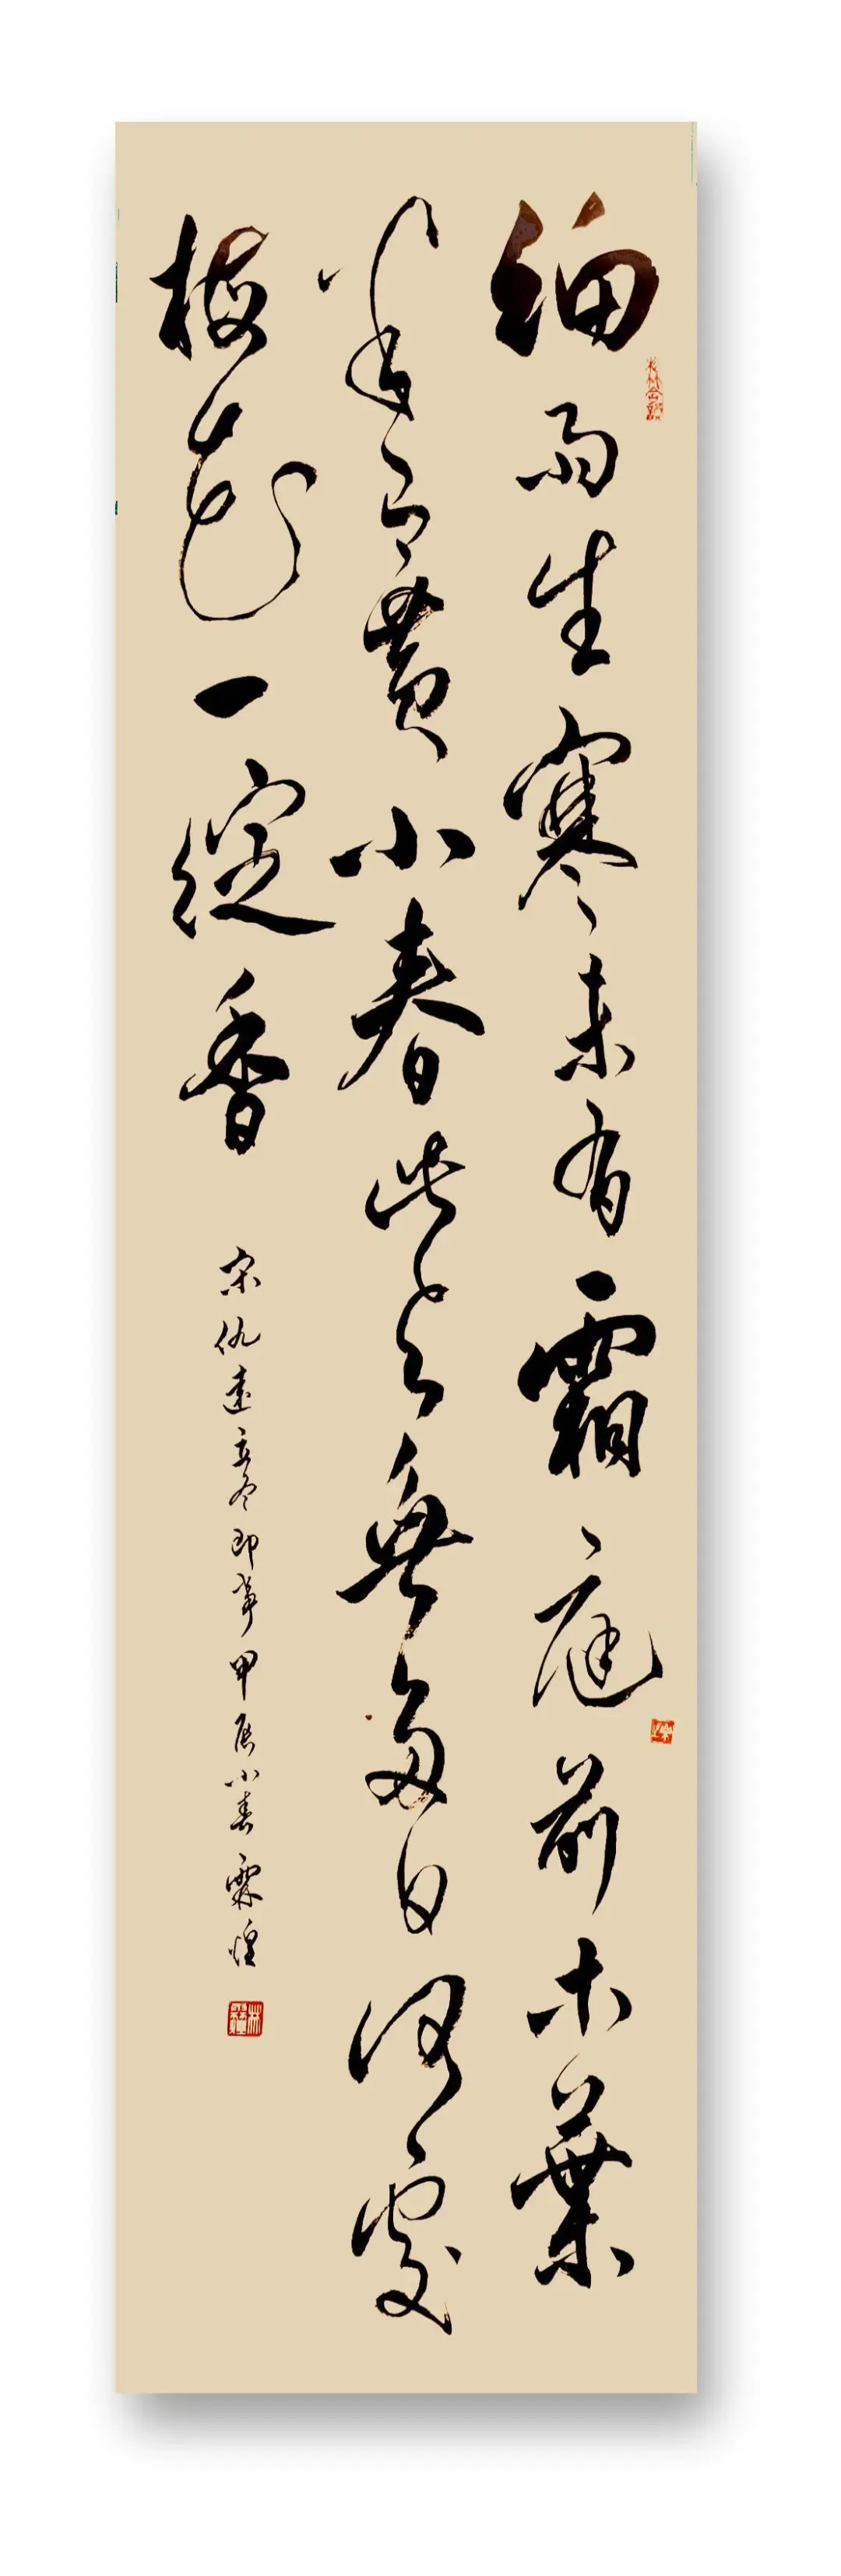 細雨生寒未有霜庭前木葉
半青黄小春此去無多日何處
梅花一綻香
宋仇遠立冬即事甲辰小春霖煌